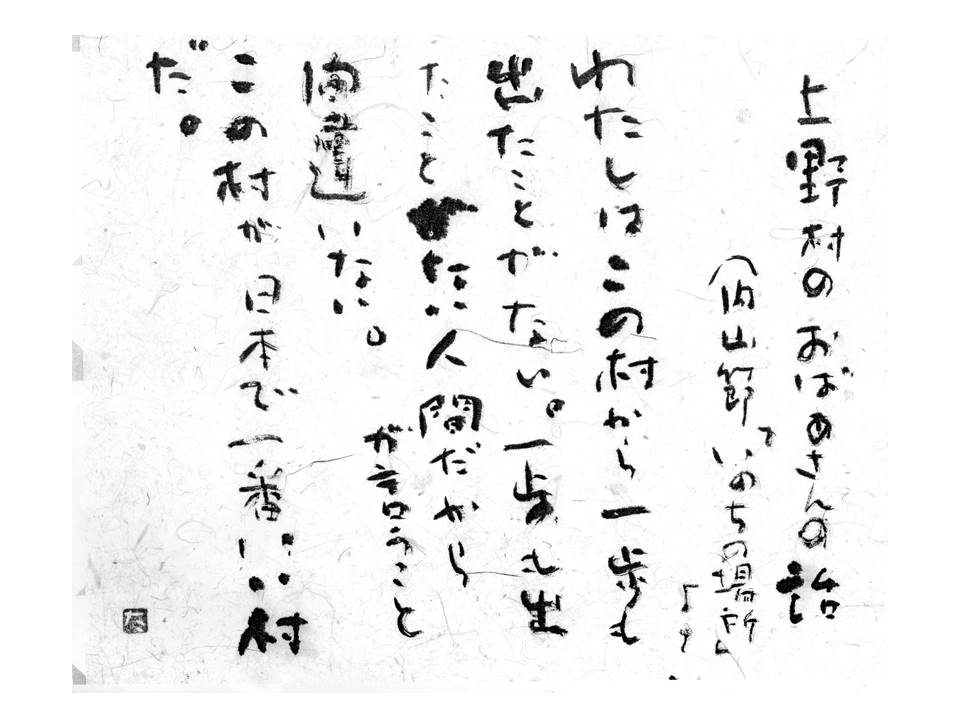 上野村のおばあさんの話
（内山節『いのちの場所』
より
わたしはこの村から一歩も
出たことがない。一歩も出
たことない人間だから
が言うこと
間違いない。
この村が日本で一番いい村
だ。